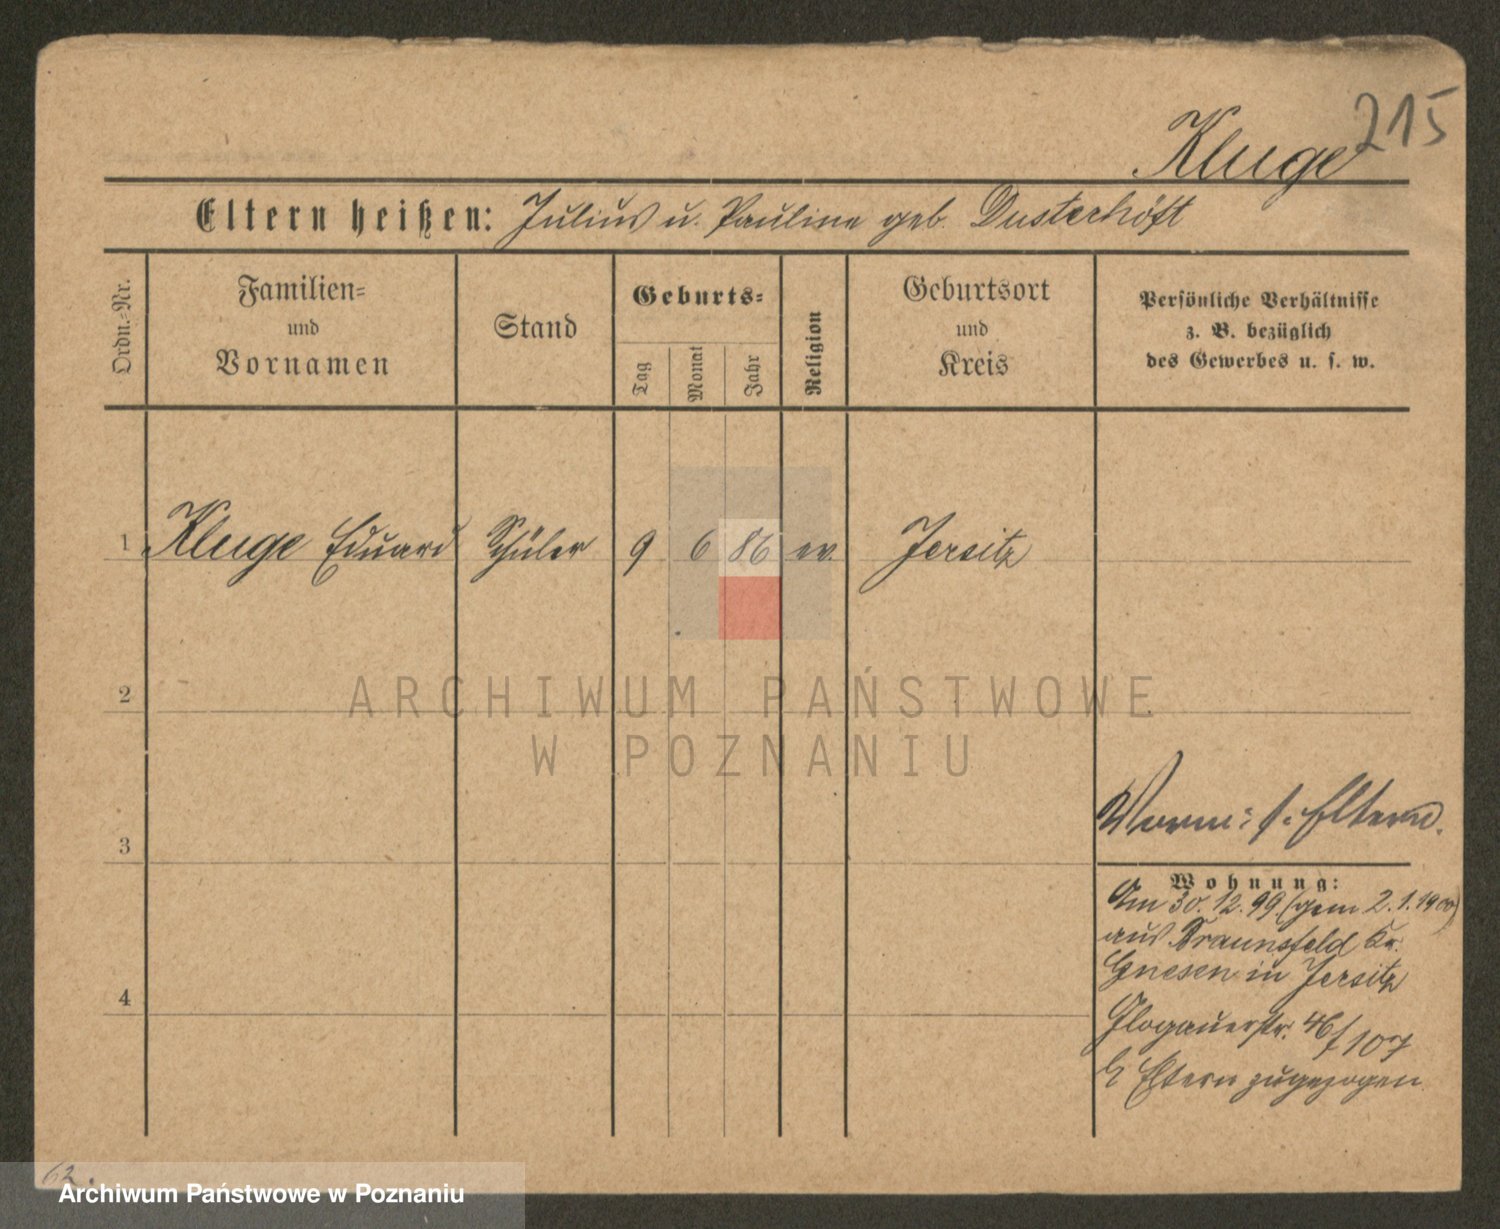 215
Kluge
Eltern heißen: Julius u. Pauline geb. Dusterhöft
Ordn.-Nr.
Familien-
und
Vornamen
Stand
Geburts-
Tag
Monat
Jahr
Religion
Geburtsort
und
Kreis
Persönliche Verhältnisse
z. B. bezüglich
des Gewerbes u. s. w.
1 Kluge Eduard Schüler 9 6 86 ev. Jersitz
2
ARCHIWUM PAŃSTWOWE
W POZNANIU
3
Vorm: s. Eltern.
Wohnung:
Am 30.12.99 (gem 2.1.1900)
aus Braunsfeld Kr.
Gnesen in Jersitz
4
Glogauerstr. 46/107
Eltern zugezogen
62.
Archiwum Państwowe w Poznaniu